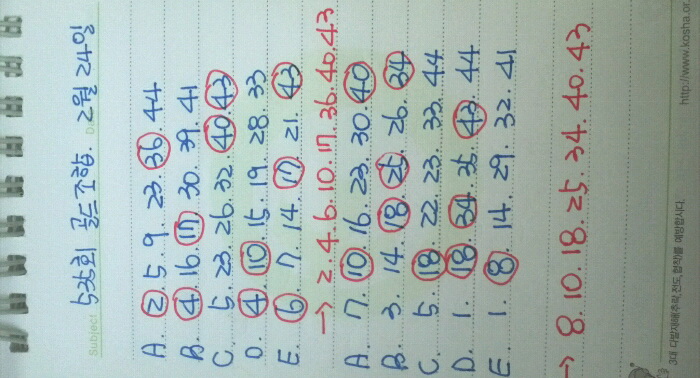 535회 골드조합. 2월 24일
Subject D
A 2. 5. 9 23. 36. 44
B. 4. 16. 17. 30. 39. 41
C. 5. 23 26. 32. 40. 43
D. 4. 10. 15. 19. 28. 33
E. 6. 7. 14. 17. 21. 43
→ 2. 4. 6. 10. 17. 36. 40. 43
A. 7. 10. 16. 23. 30. 40
B. 3. 14. 18. 25. 26. 34
C. 5. 18. 22. 23. 33. 44
D. 1. 18. 34. 35. 43. 44
E. 1. 8. 14. 29. 32. 41
→ 8. 10. 18. 25. 34. 40. 43
3대 다발재해(추락,전도,협착)를 예방합시다. http://www.kosha.or.